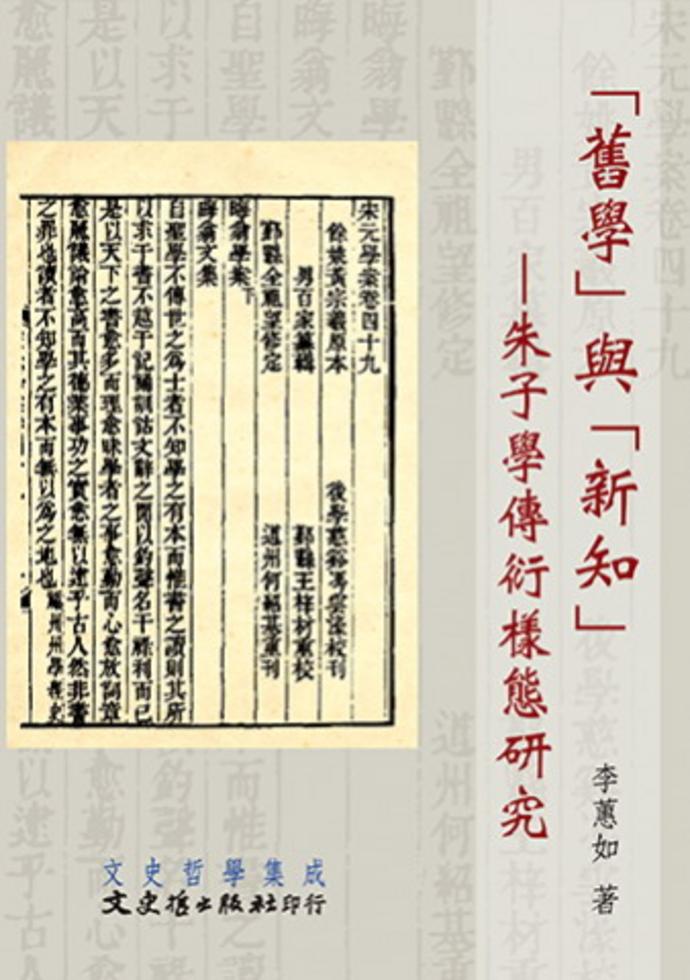 「舊學」與「新知」
—朱子學傳衍樣態研究
李蕙如 著
宋元學案卷四十九
餘姚黃宗羲原本 後學慈谿馮雲濠校刊
男百家纂輯 鄞縣王梓材重校
鄞縣全祖望修定 道州何紹基重刊
晦翁學案下
晦翁文集
自聖學不傳世之為士者不知學之有本而惟書之讀則其所
以求于書不越于記誦訓詁文辭之間以釣聲名干祿利而已
是以天下之書愈多而理愈昧學者之事愈勤而心愈放詞章
愈麗議論愈高而其德業事功之實愈無以逮乎古人然非書
之罪也讀者不知學之有本而無以為之地也
文史哲學集成
文史哲出版社印行